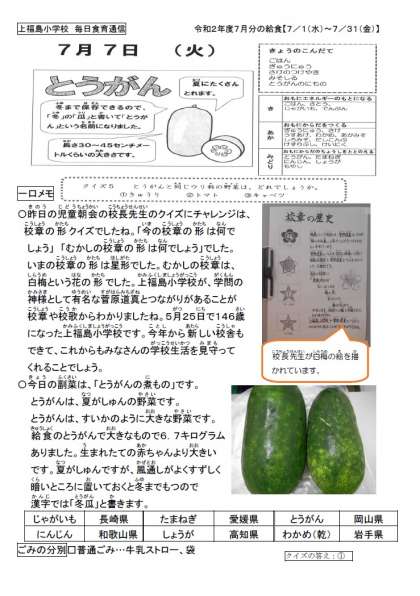 上福島小学校 毎日食育通信
令和2年度7月分の給食【7／1(水)～7／31(金)】
7月 7日 （火）
きょうのこんだて
ごはん
ぎゅうにゅう
さけのつけやき
みそしる
とうがんのにもの
とうがん
夏にたくさんとれます。
冬まで保存できるので、
「冬」の「瓜」と書いて「とうが
ん」という名前になりました。
長さ30～45センチメー
トルくらいの大きさです。
おもにエネルギーのもとになる
ごはん、さとう、
じゃがいも、でんぷん
おもにからだをつくる
ぎゅうにゅう、さけ
とうがん、たまねぎ
にんじん、しょうが
クイズ5 とうがんと同じウリ科の野菜は、どれでしょうか。
①きゅうり ②トマト ③キャベツ
一口メモ
○昨日の児童朝会の校長先生のクイズにチャレンジは、
校章の形クイズでしたね。「今の校章の形は何で
しょう」「むかしの校章の形は何でしょう」でした。
いまの校章の形は星形でした。むかしの校章は、
白梅という花の形でした。上福島小学校が、学問の
神様として有名な菅原道真とつながりがあることが
校章や校歌からわかりましたね。5月25日で146歳
になった上福島小学校です。今年から新しい校舎も
できて、これからもみなさんの学校生活を見守って
くれることでしょう。
校章の歴史
校長先生が白梅の絵を描
かれています。
○今日の副菜は、「とうがんの煮もの」です。
とうがんは、夏がしゅんの野菜です。
とうがんは、すいかのように大きな野菜です。
給食のとうがんで大きなもので6．7キログラム
ありました。生まれたての赤ちゃんより大きい
です。夏がしゅんですが、風通しがよくすずしく
暗いところに置いておくと冬までもつので
漢字では「冬瓜」と書きます。
じゃがいも 長崎県 たまねぎ 愛媛県 とうがん 岡山県
にんじん 和歌山県 しょうが 高知県 わかめ（乾） 岩手県
ごみの分別 □普通ごみ…牛乳ストロー、袋
クイズの答え：①